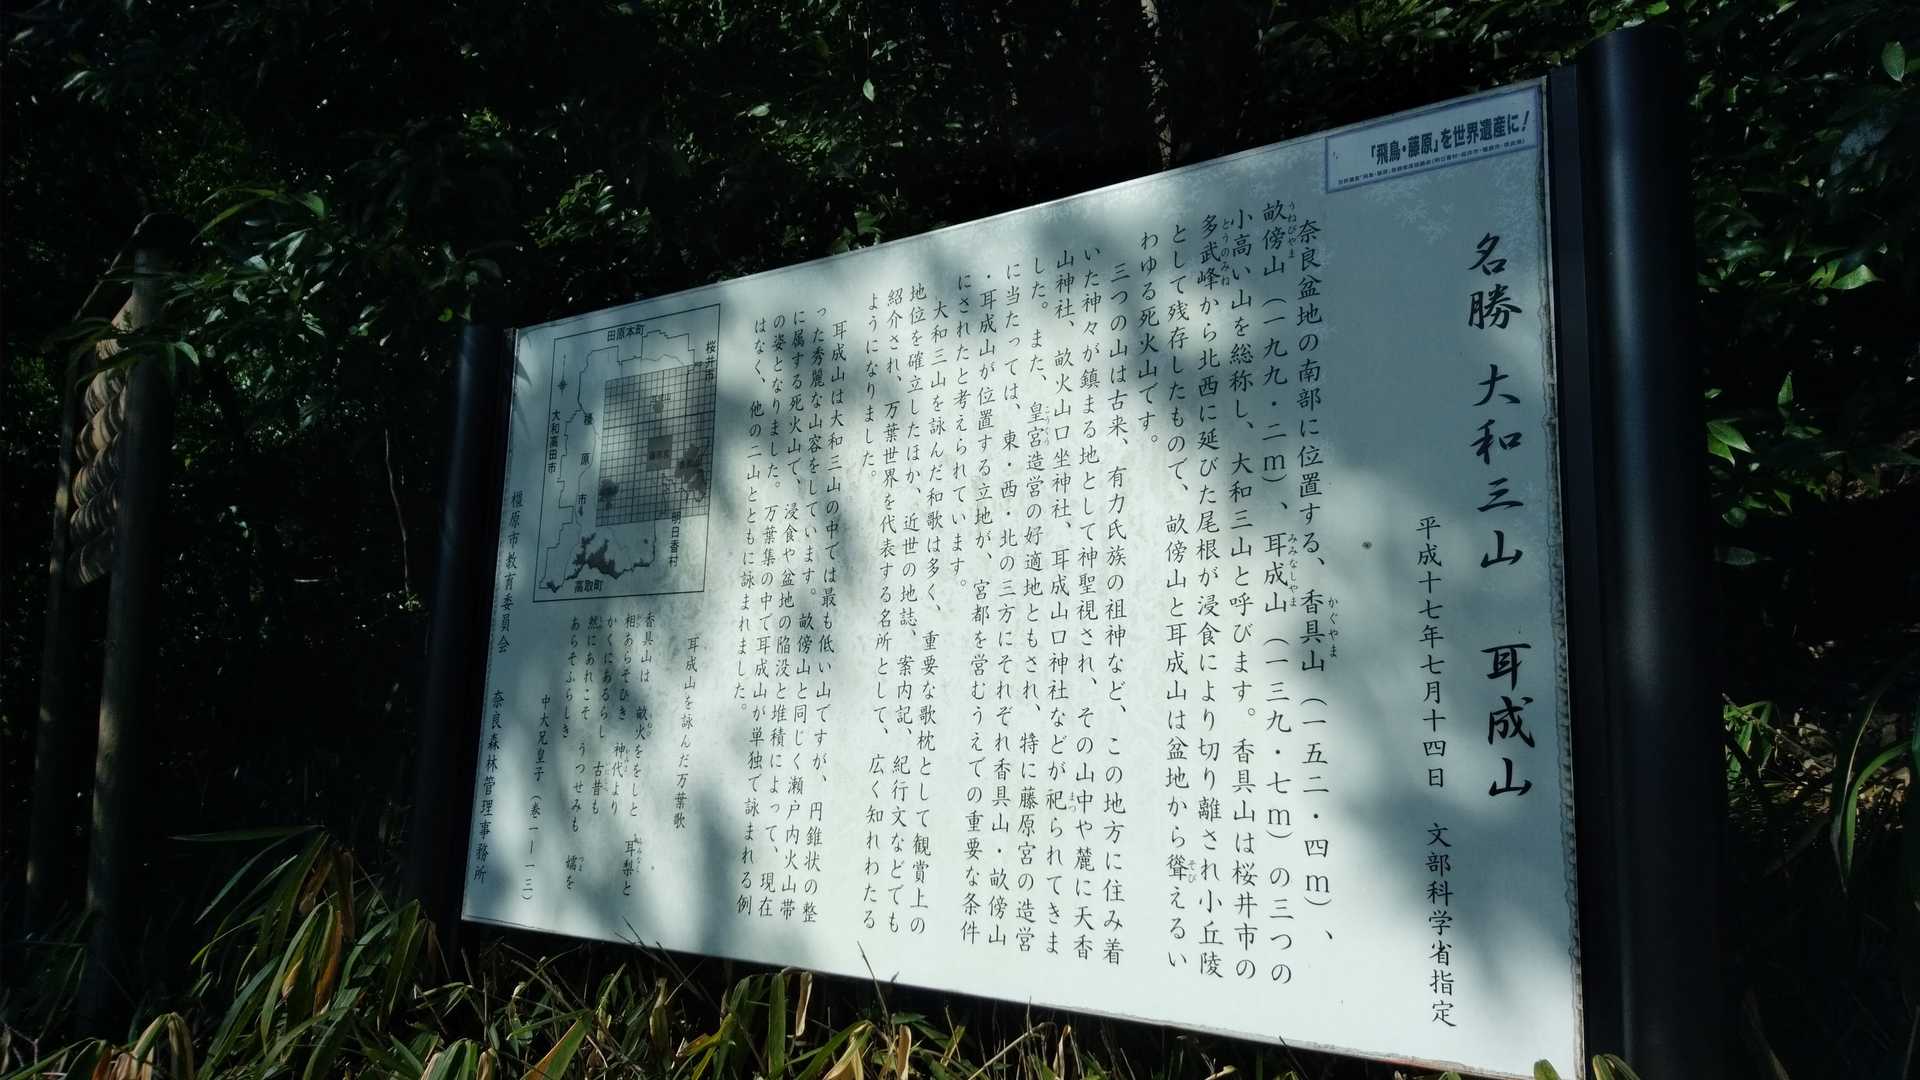 「飛鳥・藤原」を世界遺産に!
名勝 大和三山 耳成山
平成十七年七月十四日 文部科学省指定
奈良盆地の南部に位置する、香具山（一五二・四ｍ）、
畝傍山（一九九・二ｍ）、耳成山（一三九・七ｍ）の三つの
小高い山を総称し、大和三山と呼びます。香具山は桜井市の
多武峰から北西に延びた尾根が浸食により切り離され小丘陵
として残存したもので、畝傍山と耳成山は盆地から聳えるい
わゆる死火山です。
三つの山は古来、有力氏族の祖神など、この地方に住み着
いた神々が鎮まる地として神聖視され、その山中や麓に天香
山神社、畝火山口坐神社、耳成山口神社などが祀られてきま
した。また、皇宮造営の好適地ともされ、特に藤原宮の造営
に当たっては、東・西・北の三方にそれぞれ香具山・畝傍山
・耳成山が位置する立地が、宮都を営むうえでの重要な条件
にされたと考えられています。
大和三山を詠んだ和歌は多く、重要な歌枕として観賞上の
地位を確立したほか、近世の地誌、案内記、紀行文などでも
紹介され、万葉世界を代表する名所として、広く知れわたる
ようになりました。
耳成山は大和三山の中では最も低い山ですが、円錐状の整
った秀麗な山容をしています。畝傍山と同じく瀬戸内火山帯
に属する死火山で、浸食や盆地の陥没と堆積によって、現在
の姿となりました。万葉集の中で耳成山が単独で詠まれる例
はなく、他の二山とともに詠まれました。
田原本町
桜井市
大和高田市
橿原市
明日香村
高取町
耳成山を詠んだ万葉歌
香具山は 畝火ををしと 耳梨と
相あらそひき 神代より
かくにあるらし 古昔も
然にあれこそ うつせみも 嬬を
あらそふらしき
中大兄皇子（巻一―一三）
橿原市教育委員会
奈良森林管理事務所